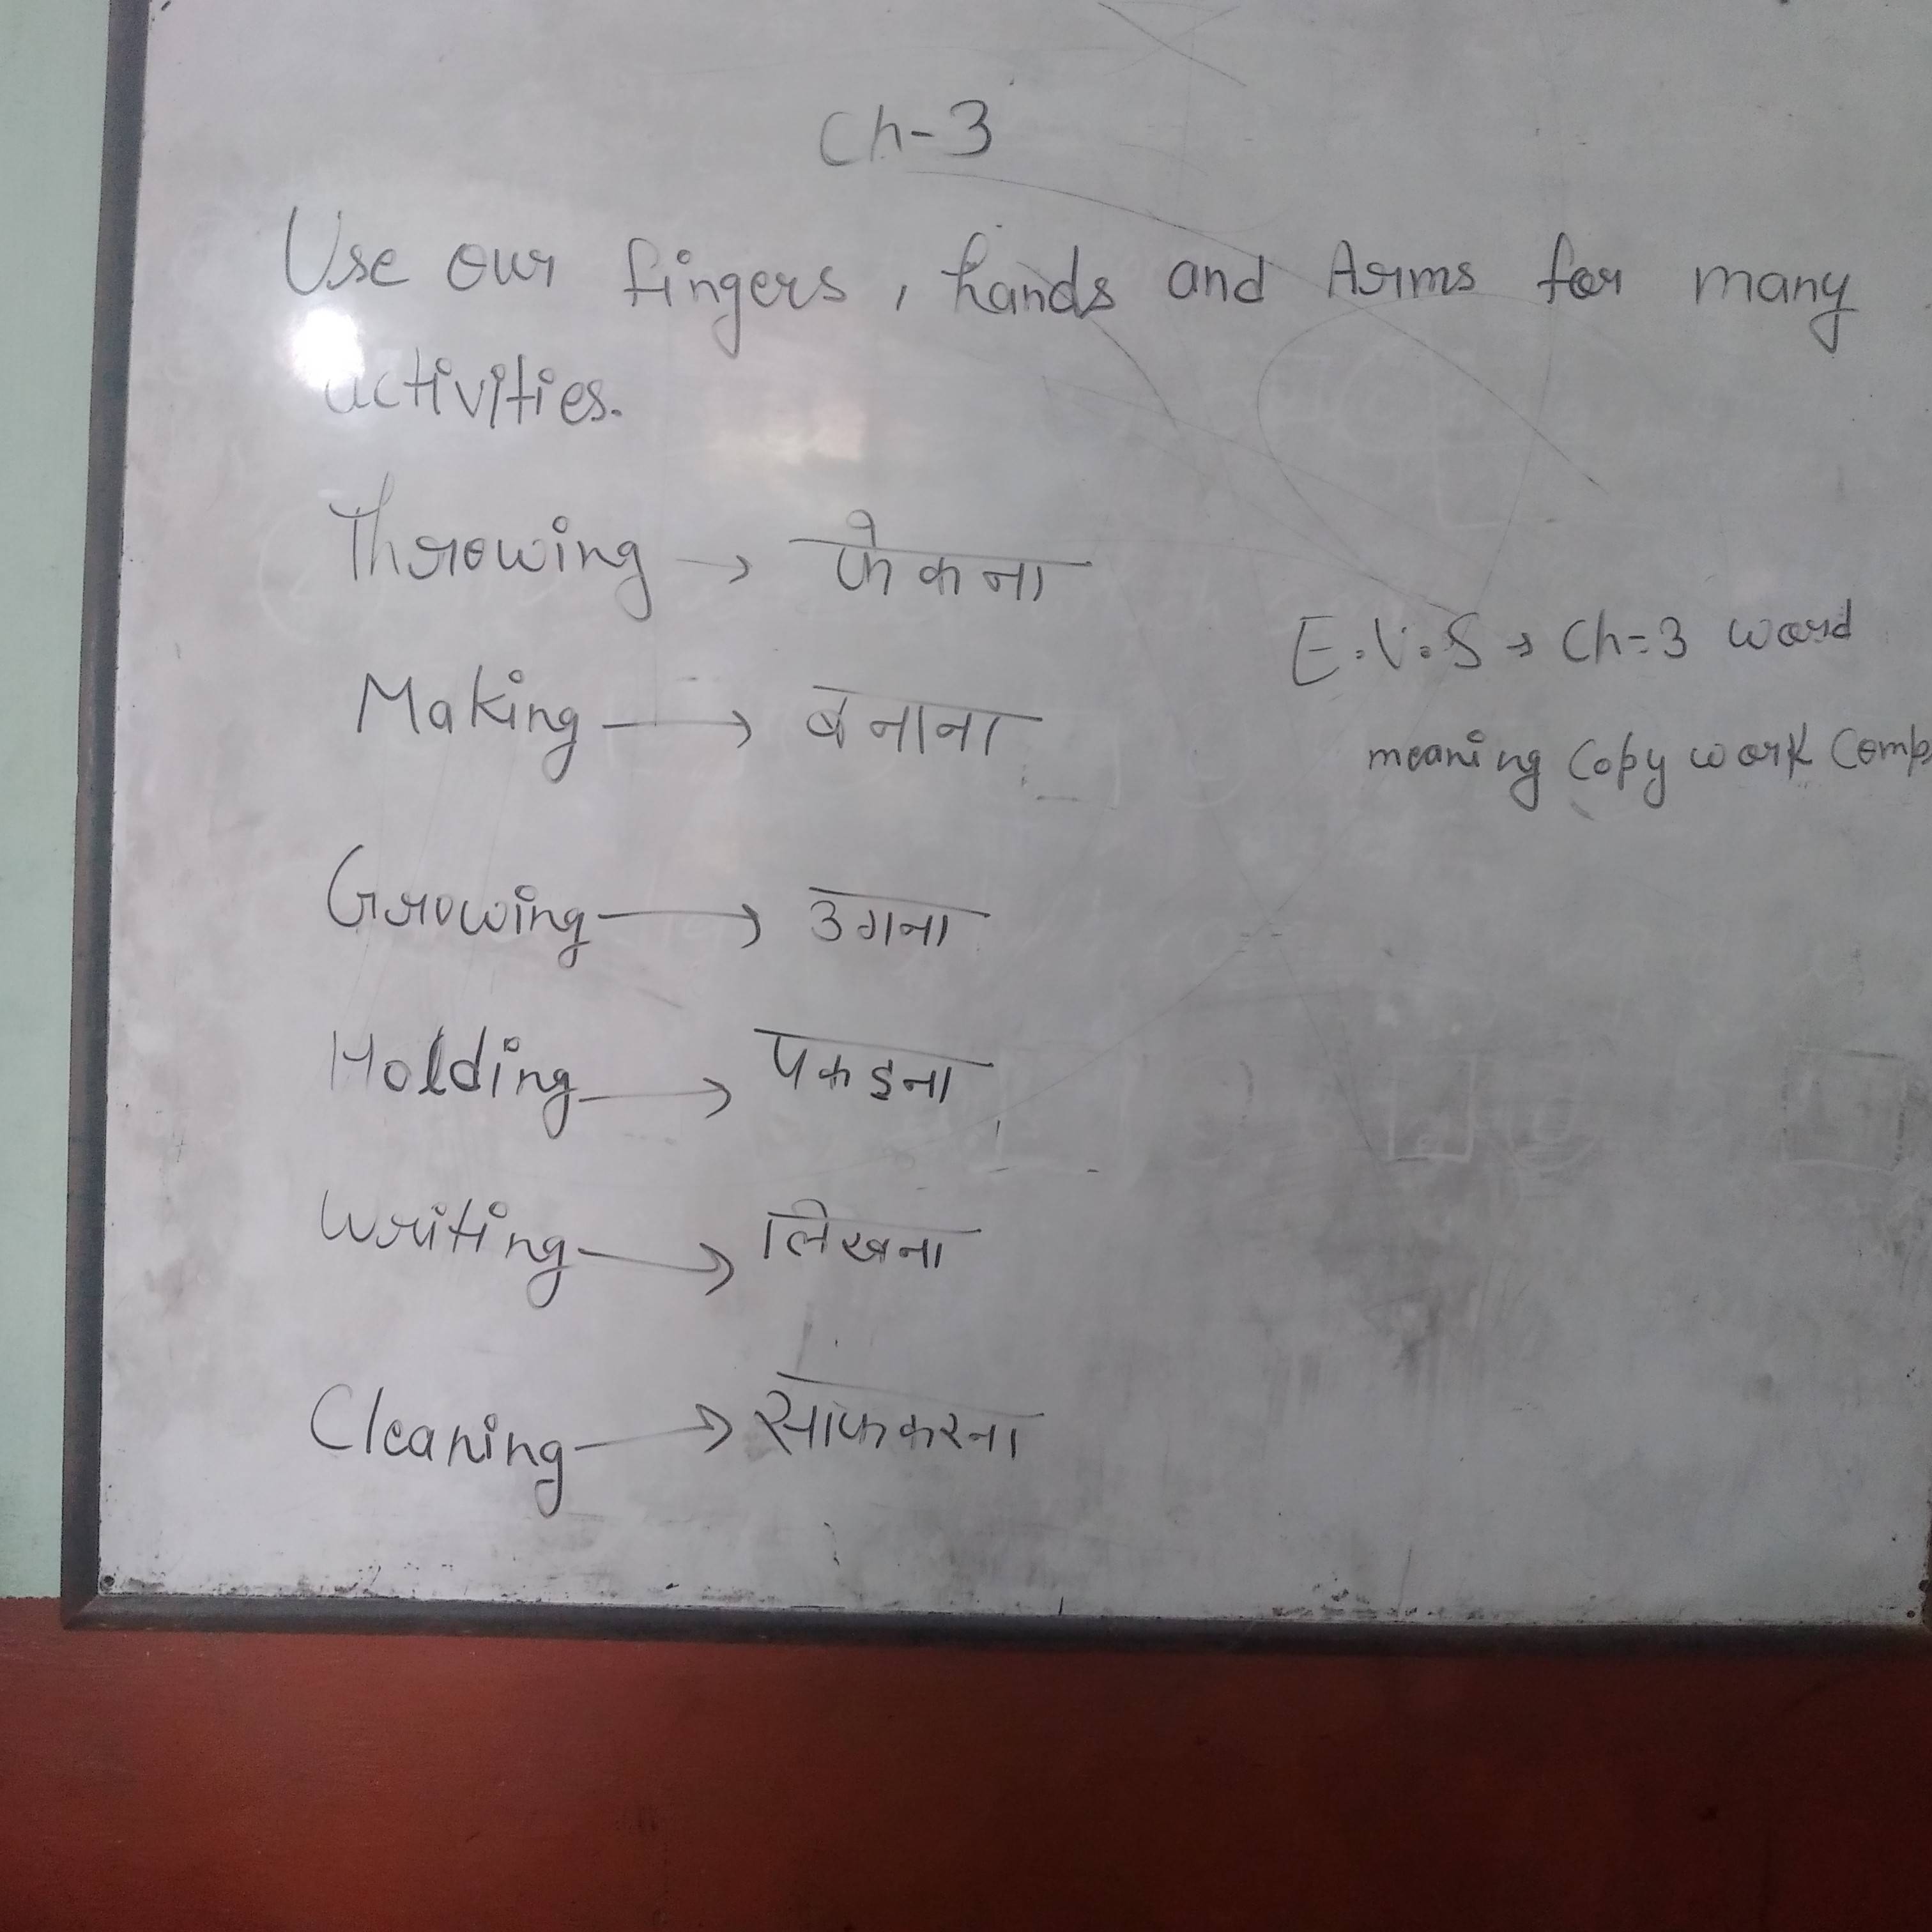 Ch-3
Use our fingers, hands and Arms for many
activities.
Throwing → फेकना
Making → बनाना
E.V.S → Ch-3 word
meaning Copy work Comp
Growing → उगना
Holding → पकडना
Writing → लिखना
Cleaning → साफ करना